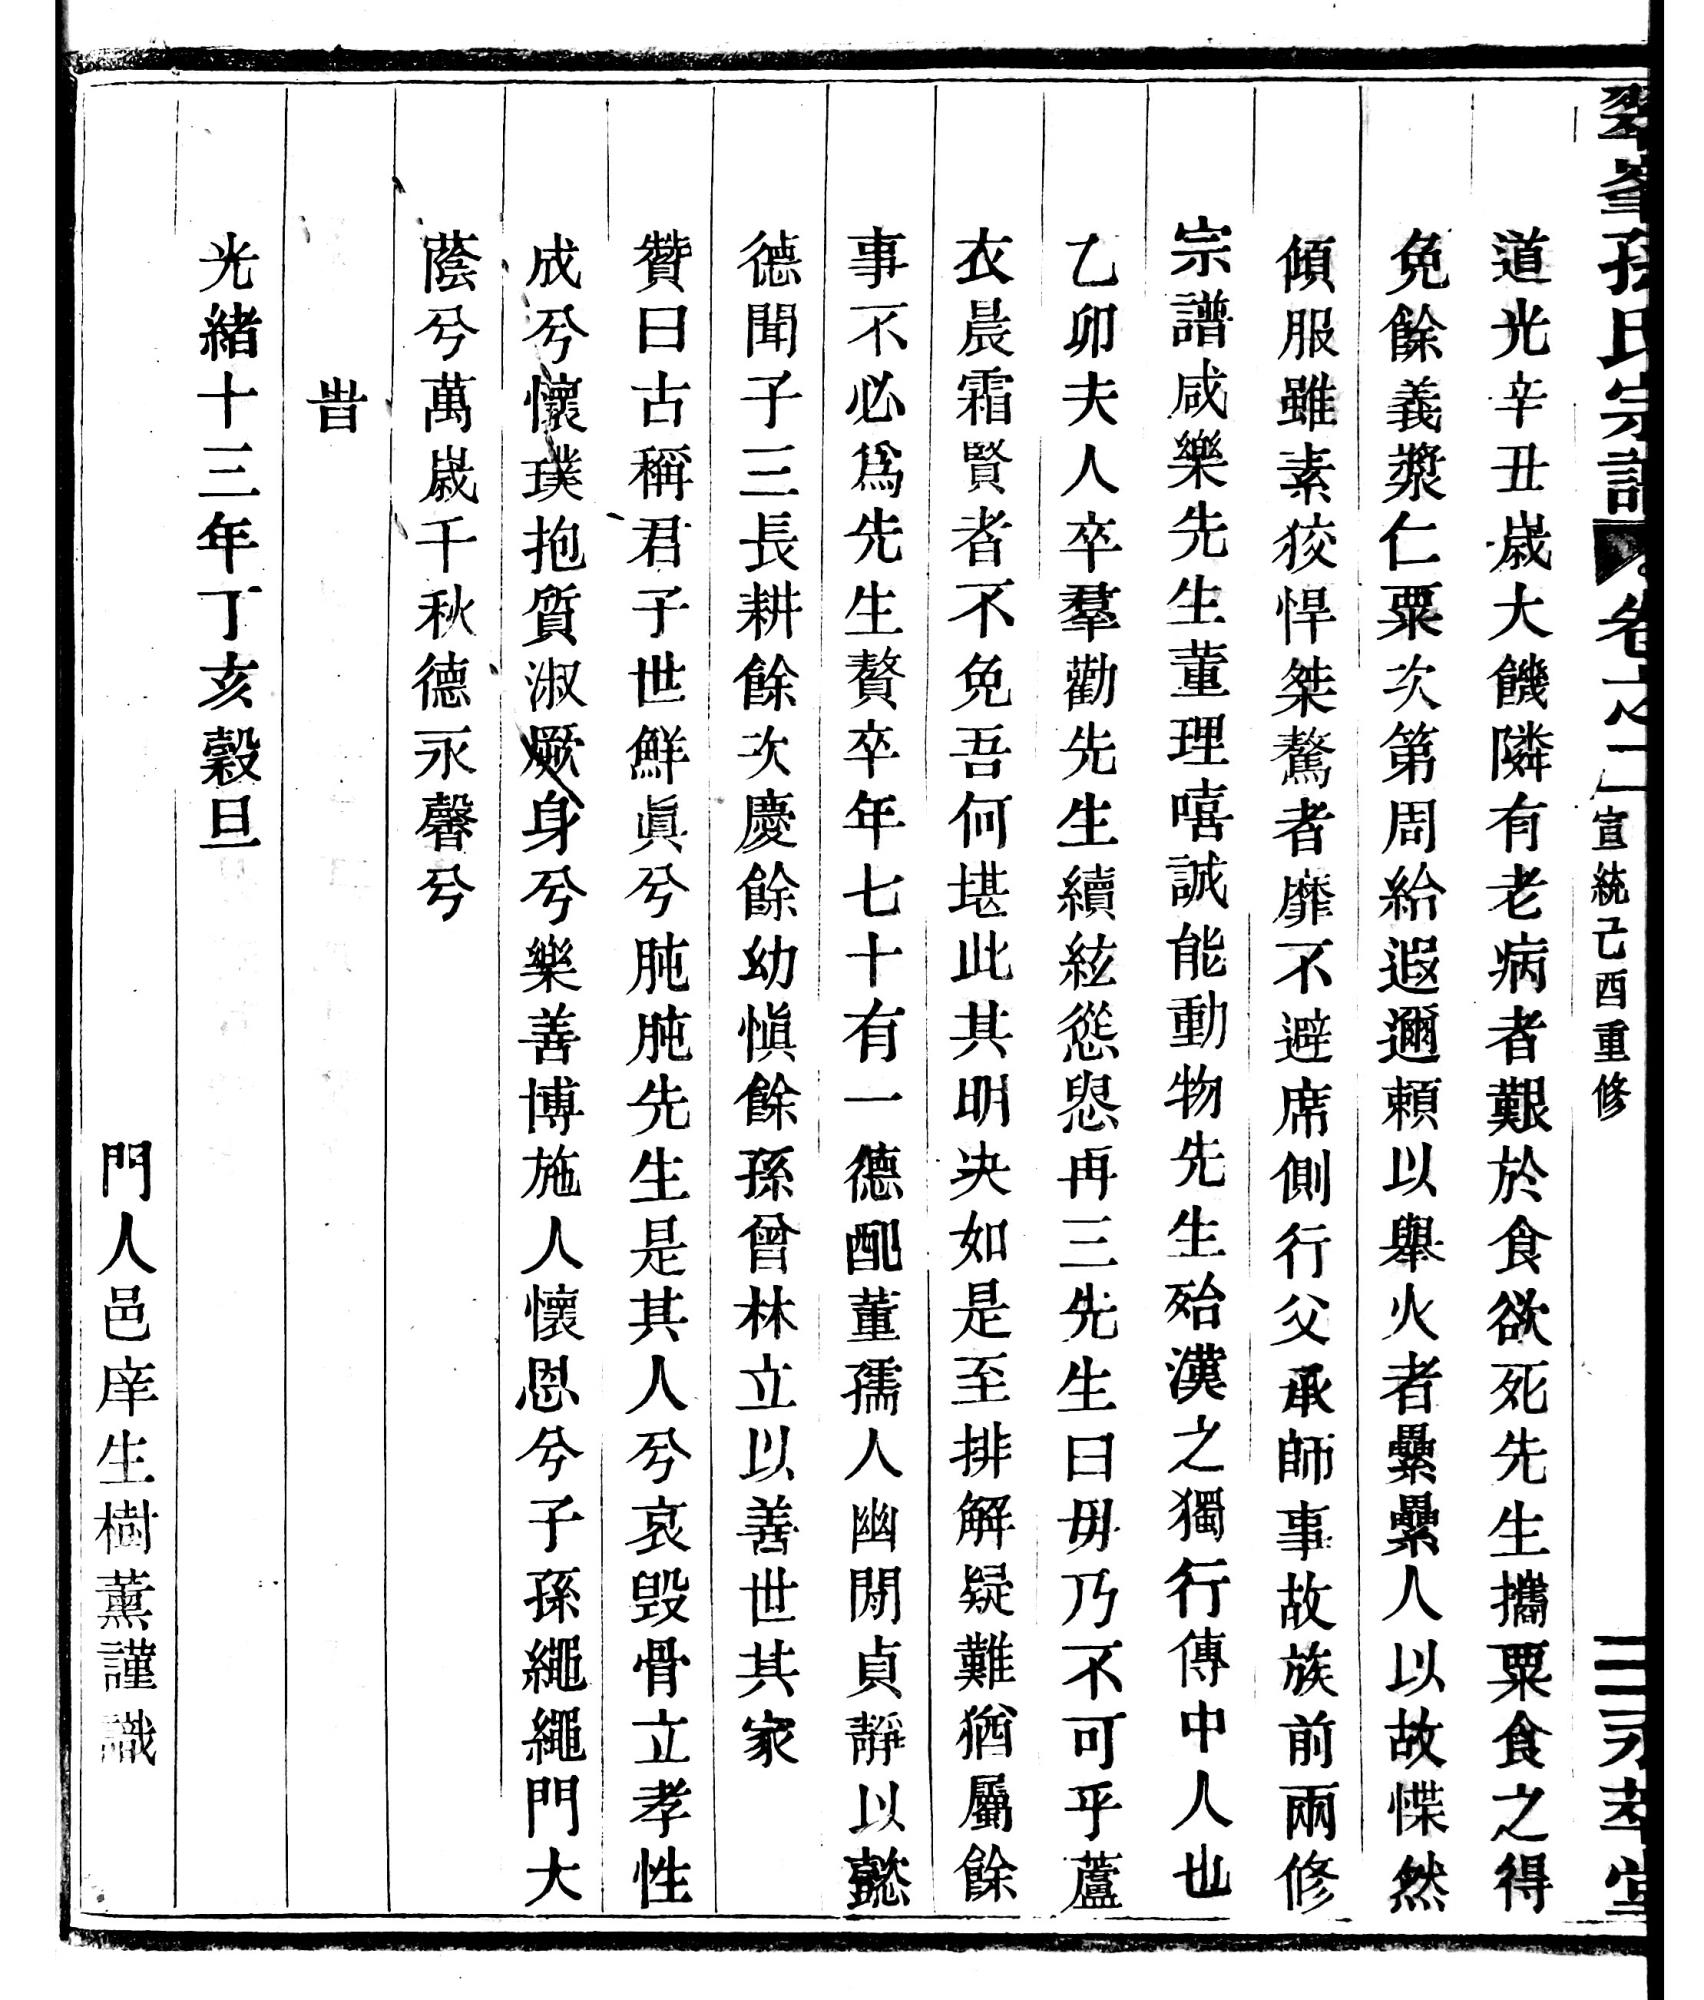 翠峯孫氏宗譜 卷之二 宣統己酉重修 二 永萃堂
道光辛丑歲大饑隣有老病者艱於食欲死先生攜粟食之得
免餘義漿仁粟次第周給遐邇頼以舉火者纍纍人以故惵然
傾服雖素狡悍桀驁者靡不避席側行父承師事故族前兩修
宗譜咸樂先生董理嘻誠能動物先生殆漢之獨行傳中人也
乙卯夫人卒羣勸先生續絃慫恿再三先生曰毋乃不可乎蘆
衣晨霜賢者不免吾何堪此其明决如是至排解疑難猶屬餘
事不必爲先生贅卒年七十有一德配董孺人幽閒貞靜以懿
德聞子三長耕餘次慶餘幼愼餘孫曾林立以善世其家
贊曰古稱君子世鮮眞兮肫肫先生是其人兮哀毀骨立孝性
成兮懷璞抱質淑厥身兮樂善博施人懷恩兮子孫繩繩門大
蔭兮萬歲千秋德永馨兮
旹
光緒十三年丁亥穀旦
門人邑庠生樹薰謹識